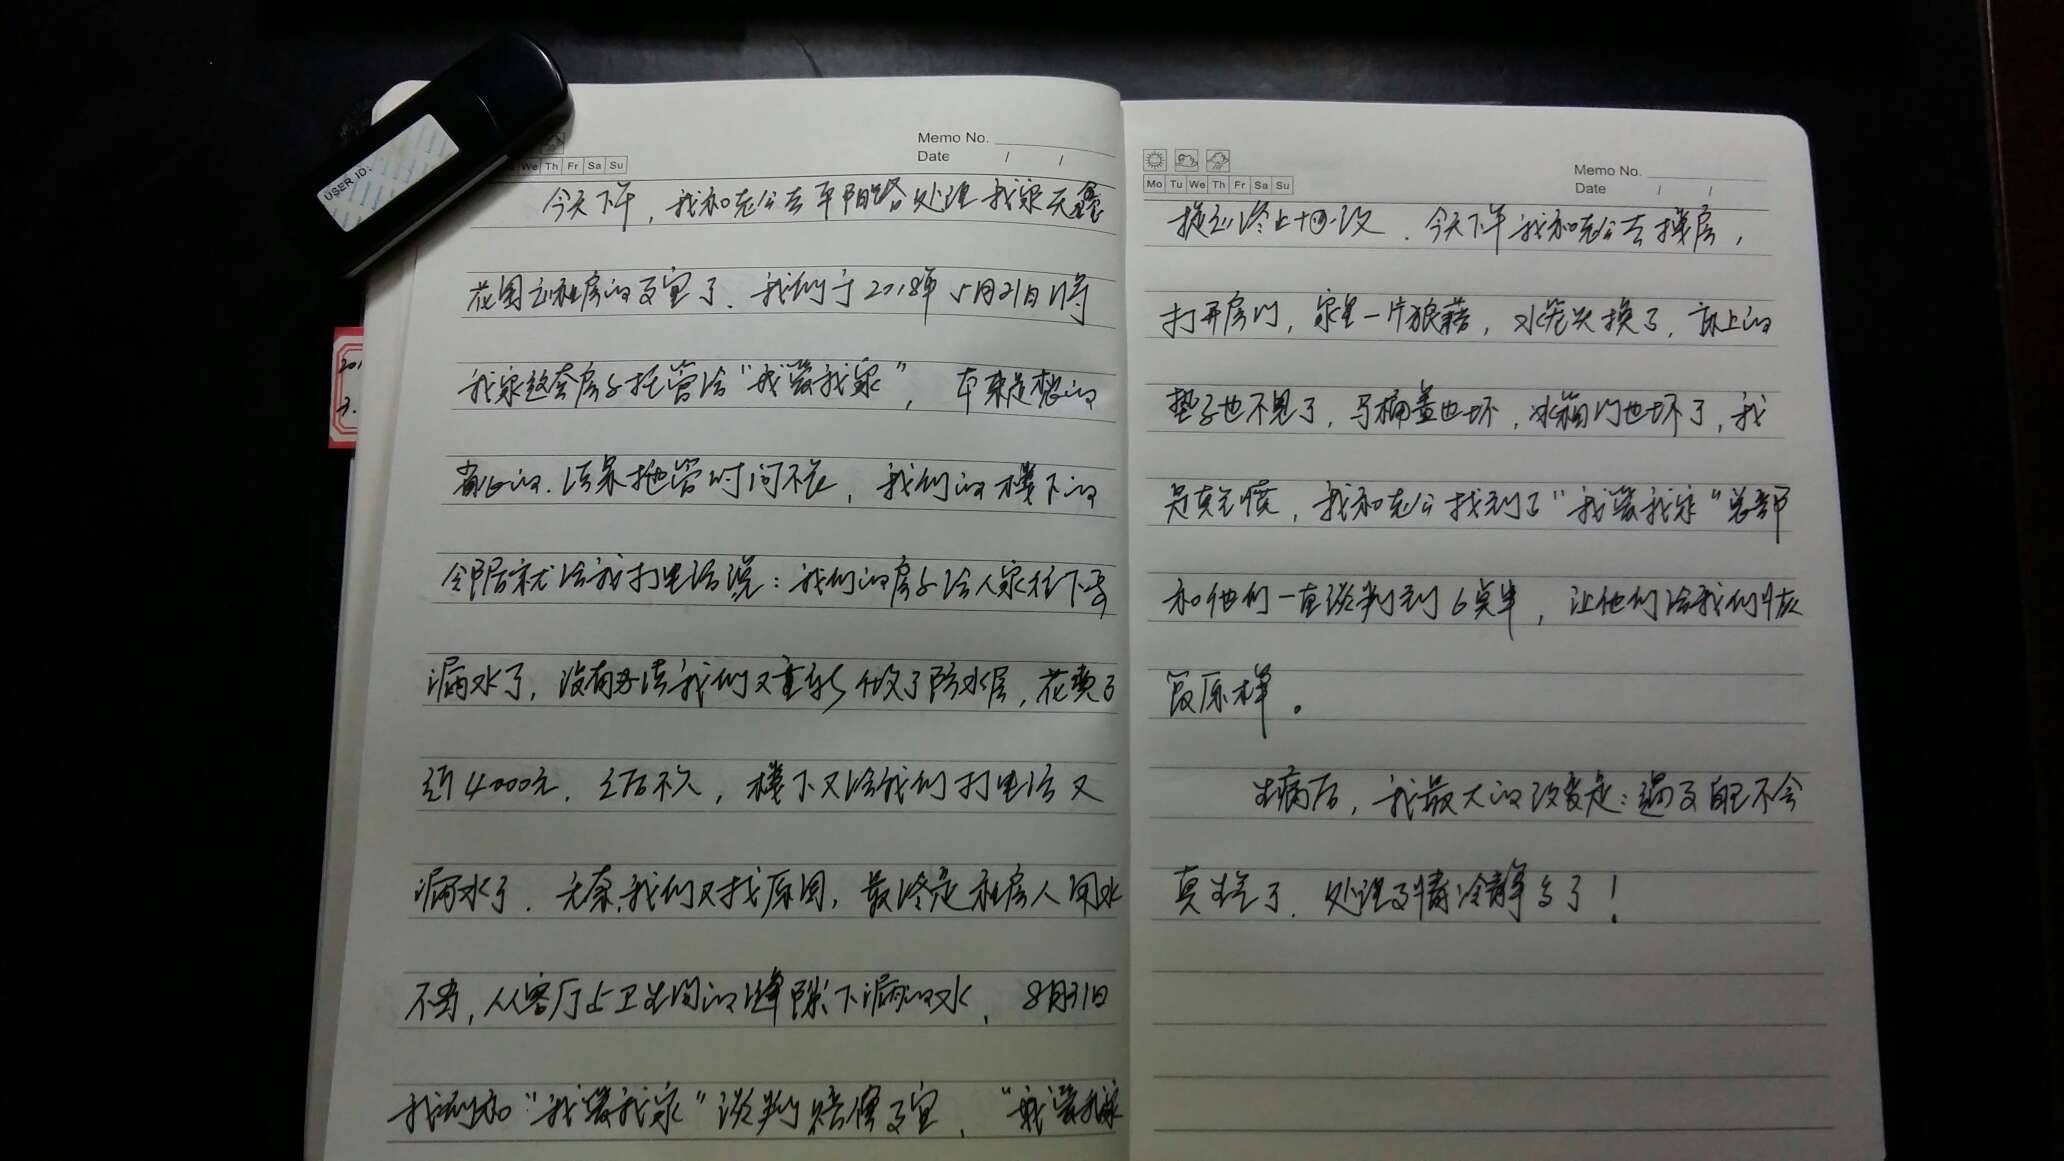 USER ID:
We Th Fr Sa Su
Memo No.
Date / /
今天下午，我和老公去平阳路处理我家天鹅
花园出租房的事宜了．我们于2018年5月21日将
我家这套房子托管给“我爱我家”，本来是想的
省心的．结果托管时间不长，我们的楼下的
邻居就给我打电话说：我们的房子给人家往下
漏水了，没有办法我们又重新做了防水层，花费了
近4000元．之后不久，楼下又给我们打电话又
漏水了．无奈，我们又找原因，最终是租房人用水
不当，从客厅与卫生间的缝隙下漏的水，8月31日
我们和“我爱我家”谈判赔偿事宜，“我爱我家
Mo Tu We Th Fr Sa Su
Memo No.
Date / /
提出终止协议．今天下午我和老公去接房，
打开房门，家里一片狼藉，水笼头换了，床上的
垫子也不见了，马桶盖也坏，冰箱门也坏了，我
是真气愤，我和老公找到了“我爱我家”总部
和他们一直谈判到6点半，让他们给我们恢
复原样。
生病后，我最大的改变是：遇事自己不会
真生气了．处理事情冷静多了！
201